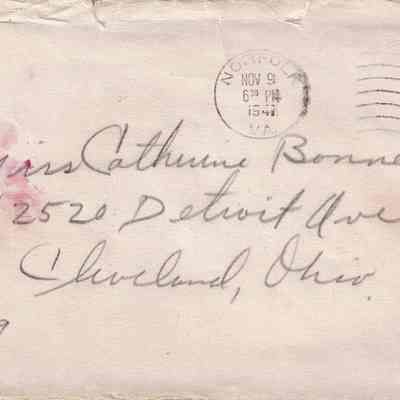 NORFOLK
NOV 9
6 PM
1941
VA.
Miss Catherine Bonne
2520 Detroit Ave
Cleveland, Ohio.